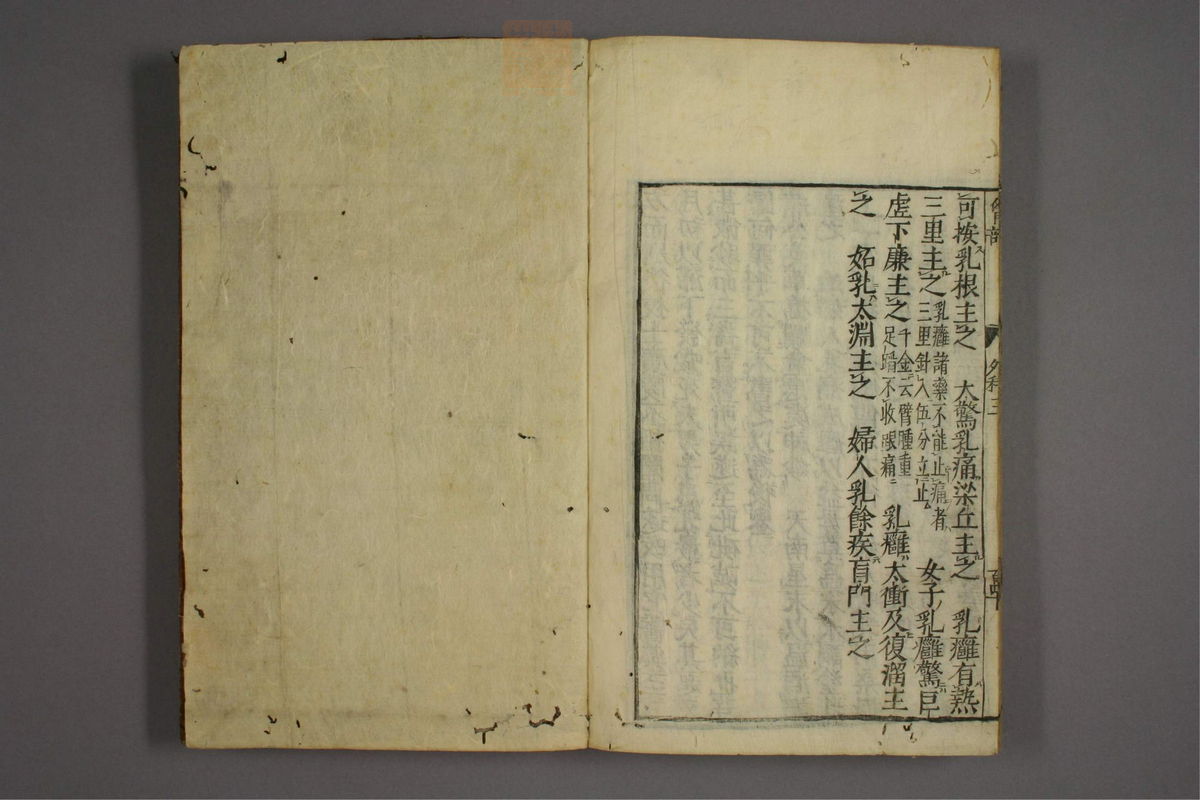 胷部　外科三
可按乳根主之　大驚乳痛梁丘主之　乳癰有熱
三里主之乳癰諸藥不能止痛者三里針入五分立止　女子乳癰驚巨
虚下廉主之千金云臂腫重足跗不收跟痛　乳癰太衝及復溜主
之　妬乳太淵主之　婦人乳餘疾肓門主之